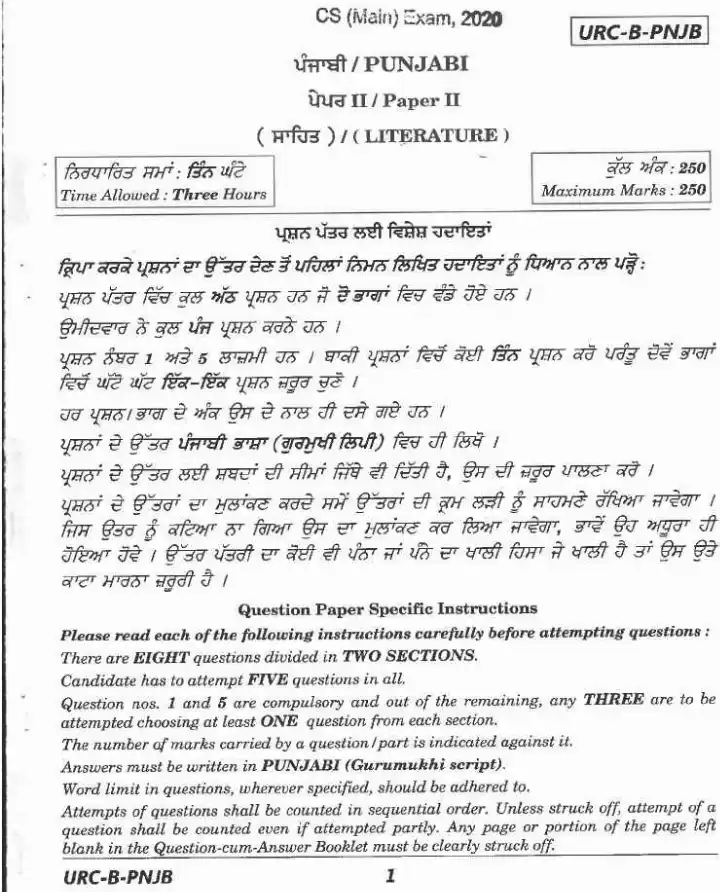 CS (Main) Exam, 2020
URC-B-PNJB
ਪੰਜਾਬੀ / PUNJABI
ਪੇਪਰ II / Paper II
( ਸਾਹਿਤ ) / ( LITERATURE )
ਨਿਰਧਾਰਿਤ ਸਮਾਂ : ਤਿੰਨ ਘੰਟੇ
Time Allowed : Three Hours
ਕੁੱਲ ਅੰਕ : 250
Maximum Marks : 250
ਪ੍ਰਸ਼ਨ ਪੱਤਰ ਲਈ ਵਿਸ਼ੇਸ਼ ਹਦਾਇਤਾਂ
ਕ੍ਰਿਪਾ ਕਰਕੇ ਪ੍ਰਸ਼ਨਾਂ ਦਾ ਉੱਤਰ ਦੇਣ ਤੋਂ ਪਹਿਲਾਂ ਨਿਮਨ ਲਿਖਿਤ ਹਦਾਇਤਾਂ ਨੂੰ ਧਿਆਨ ਨਾਲ ਪੜ੍ਹੋ :
ਪ੍ਰਸ਼ਨ ਪੱਤਰ ਵਿੱਚ ਕੁਲ ਅੱਠ ਪ੍ਰਸ਼ਨ ਹਨ ਜੋ ਦੋ ਭਾਗਾਂ ਵਿਚ ਵੰਡੇ ਹੋਏ ਹਨ ।
ਉਮੀਦਵਾਰ ਨੇ ਕੁਲ ਪੰਜ ਪ੍ਰਸ਼ਨ ਕਰਨੇ ਹਨ ।
ਪ੍ਰਸ਼ਨ ਨੰਬਰ 1 ਅਤੇ 5 ਲਾਜ਼ਮੀ ਹਨ । ਬਾਕੀ ਪ੍ਰਸ਼ਨਾਂ ਵਿਚੋਂ ਕੋਈ ਤਿੰਨ ਪ੍ਰਸ਼ਨ ਕਰੋ ਪਰੰਤੂ ਦੋਵੇਂ ਭਾਗਾਂ
ਵਿਚੋਂ ਘੱਟੋ ਘੱਟ ਇੱਕ-ਇੱਕ ਪ੍ਰਸ਼ਨ ਜ਼ਰੂਰ ਚੁਣੋ ।
ਹਰ ਪ੍ਰਸ਼ਨ/ਭਾਗ ਦੇ ਅੰਕ ਉਸ ਦੇ ਨਾਲ ਹੀ ਦਸੇ ਗਏ ਹਨ ।
ਪ੍ਰਸ਼ਨਾਂ ਦੇ ਉੱਤਰ ਪੰਜਾਬੀ ਭਾਸ਼ਾ (ਗੁਰਮੁਖੀ ਲਿਪੀ) ਵਿਚ ਹੀ ਲਿਖੋ ।
ਪ੍ਰਸ਼ਨਾਂ ਦੇ ਉੱਤਰ ਲਈ ਸ਼ਬਦਾਂ ਦੀ ਸੀਮਾਂ ਜਿੱਥੇ ਵੀ ਦਿੱਤੀ ਹੈ, ਉਸ ਦੀ ਜ਼ਰੂਰ ਪਾਲਣਾ ਕਰੋ ।
ਪ੍ਰਸ਼ਨਾਂ ਦੇ ਉੱਤਰਾਂ ਦਾ ਮੁਲਾਂਕਣ ਕਰਦੇ ਸਮੇਂ ਉੱਤਰਾਂ ਦੀ ਕ੍ਰਮ ਲੜੀ ਨੂੰ ਸਾਹਮਣੇ ਰੱਖਿਆ ਜਾਵੇਗਾ ।
ਜਿਸ ਉਤਰ ਨੂੰ ਕਟਿਆ ਨਾ ਗਿਆ ਉਸ ਦਾ ਮੁਲਾਂਕਣ ਕਰ ਲਿਆ ਜਾਵੇਗਾ, ਭਾਵੇਂ ਉਹ ਅਧੂਰਾ ਹੀ
ਹੋਇਆ ਹੋਵੇ । ਉੱਤਰ ਪੱਤਰੀ ਦਾ ਕੋਈ ਵੀ ਪੰਨਾ ਜਾਂ ਪੰਨੇ ਦਾ ਖਾਲੀ ਹਿਸਾ ਜੇ ਖਾਲੀ ਹੈ ਤਾਂ ਉਸ ਉਤੇ
ਕਾਟਾ ਮਾਰਨਾ ਜ਼ਰੂਰੀ ਹੈ ।
Question Paper Specific Instructions
Please read each of the following instructions carefully before attempting questions :
There are EIGHT questions divided in TWO SECTIONS.
Candidate has to attempt FIVE questions in all.
Question nos. 1 and 5 are compulsory and out of the remaining, any THREE are to be
attempted choosing at least ONE question from each section.
The number of marks carried by a question/part is indicated against it.
Answers must be written in PUNJABI (Gurumukhi script).
Word limit in questions, wherever specified, should be adhered to.
Attempts of questions shall be counted in sequential order. Unless struck off, attempt of a
question shall be counted even if attempted partly. Any page or portion of the page left
blank in the Question-cum-Answer Booklet must be clearly struck off.
URC-B-PNJB
1